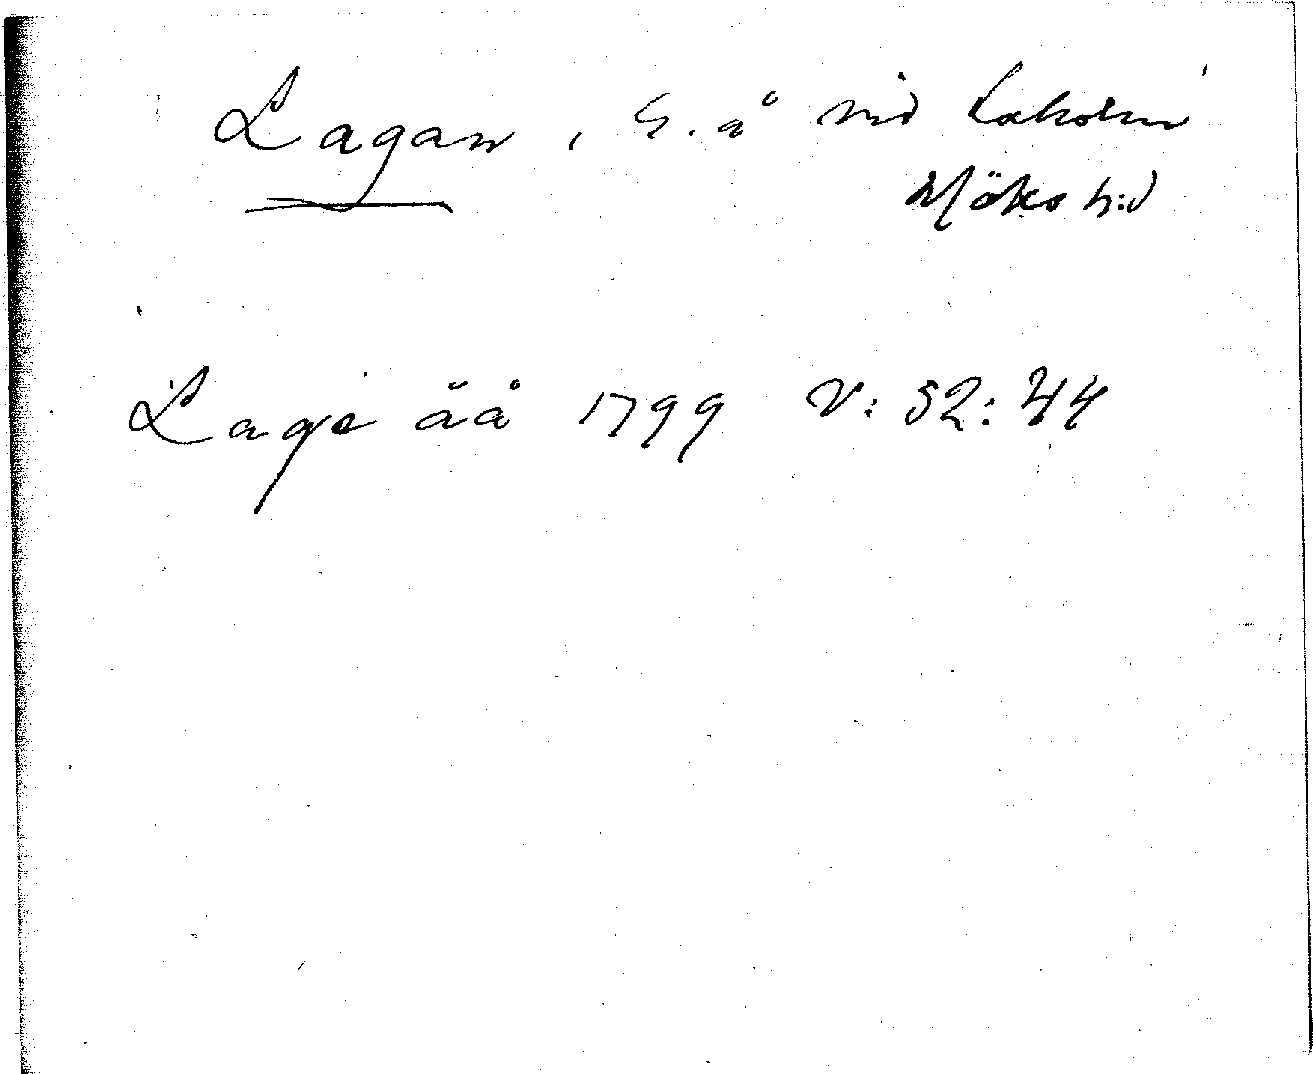 Lagan, S. å vid Laholm
Höks h:d
Lage åå 1799 V: 52: 44